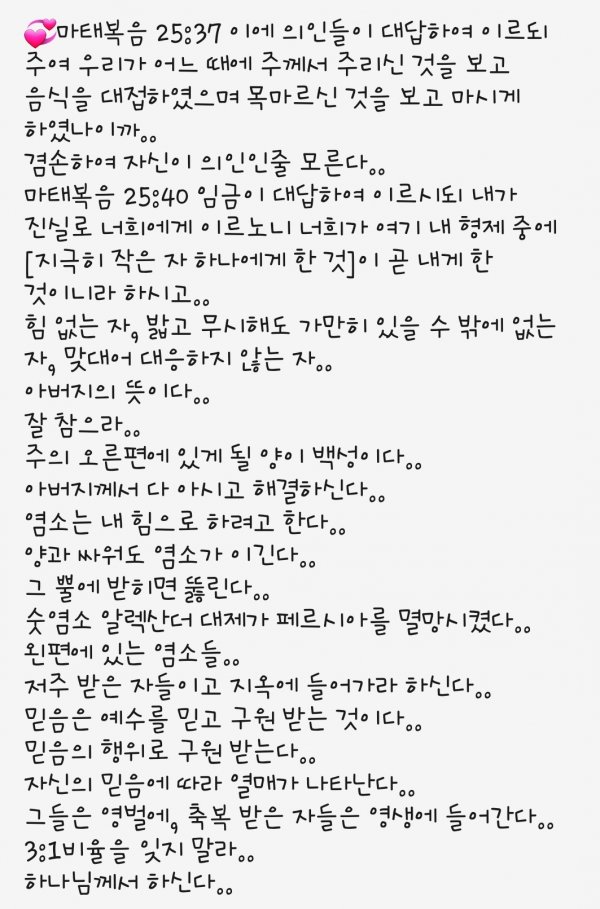 💞마태복음 25:37 이에 의인들이 대답하여 이르되
주여 우리가 어느 때에 주께서 주리신 것을 보고
음식을 대접하였으며 목마르신 것을 보고 마시게
하였나이까..
겸손하여 자신이 의인인줄 모른다..
마태복음 25:40 임금이 대답하여 이르시되 내가
진실로 너희에게 이르노니 너희가 여기 내 형제 중에
[지극히 작은 자 하나에게 한 것]이 곧 내게 한
것이니라 하시고..
힘 없는 자, 밟고 무시해도 가만히 있을 수 밖에 없는
자, 맞대어 대응하지 않는 자..
아버지의 뜻이다..
잘 참으라..
주의 오른편에 있게 될 양이 백성이다..
아버지께서 다 아시고 해결하신다..
염소는 내 힘으로 하려고 한다..
양과 싸워도 염소가 이긴다..
그 뿔에 받히면 뚫린다..
숫염소 알렉산더 대제가 페르시아를 멸망시켰다..
왼편에 있는 염소들..
저주 받은 자들이고 지옥에 들어가라 하신다..
믿음은 예수를 믿고 구원 받는 것이다..
믿음의 행위로 구원 받는다..
자신의 믿음에 따라 열매가 나타난다..
그들은 영벌에, 축복 받은 자들은 영생에 들어간다..
3:1비율을 잊지 말라..
하나님께서 하신다..